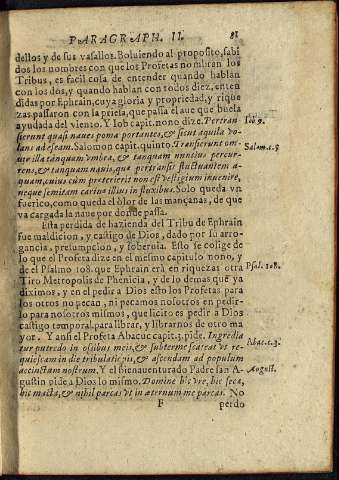 PARAGRAPH. II. 81
dellos y de sus vasallos. Boluiendo al proposito, sabi
dos los nombres con que los Profetas nombran los
Tribus, es facil cosa de entender quando hablan
con los dos, y quando hablan con todos diez, enten
didas por Ephrain, cuya gloria y propriedad, y rique
zas passaron con la priesa, que passa el aue que buela
ayudada del viento. Y Iob capit. nono dize. Pertran
sierunt quasi naues poma portantes, & sicut aquila vo-
lans ad escam. Salomon capit. quinto. Transierunt om-
nia illa tanquam vmbra, & tanquam nuntius percur-
rens, & tanquam nauis, quæ pertransit fluctuantem a-
quam, cuius cum præterierit non est vestigium inuenire,
neque semitam carinæ illius in fluxibus. Solo queda vn
fuerico, como queda el òlor de las mançanas, de que
va cargada la naue por donde passa.
Esta perdida de hazienda del Tribu de Ephrain
fue maldicion, y castigo de Dios, dado por su arro-
gancia, presumpcion, y soberuia. Esto se colige de
lo que el Profeta dize en el mismo capitulo nono, y
de el Psalmo 108. que Ephrain erà en riquezas otra
Tiro Metropolis de Phenicia, y de lo demas que ya
diximos, y en el pedir a Dios esto los Profetas para
los otros no pecan, ni pecamos nosotros en pedir-
lo para nosotros mismos, que licito es pedir a Dios
castigo temporal, para librar, y librarnos de otro ma
yor. Y ansi el Profeta Abacuc capit. 3. pide. Ingredia
tur putredo in ossibus meis, & subter me scateat vt re-
quiescam in die tribulationis, & ascendam ad populum
accinctum nostrum. Y el bienauenturado Padre san A-
gustin pide a Dios lo mismo. Domine hic vre, hic seca,
hic macta, & nihil parcas vt in æternum me parcas. No
F perdo
Iob 9.
Salam. c. 5
Psal. 108.
Abac. c. 3.
August.